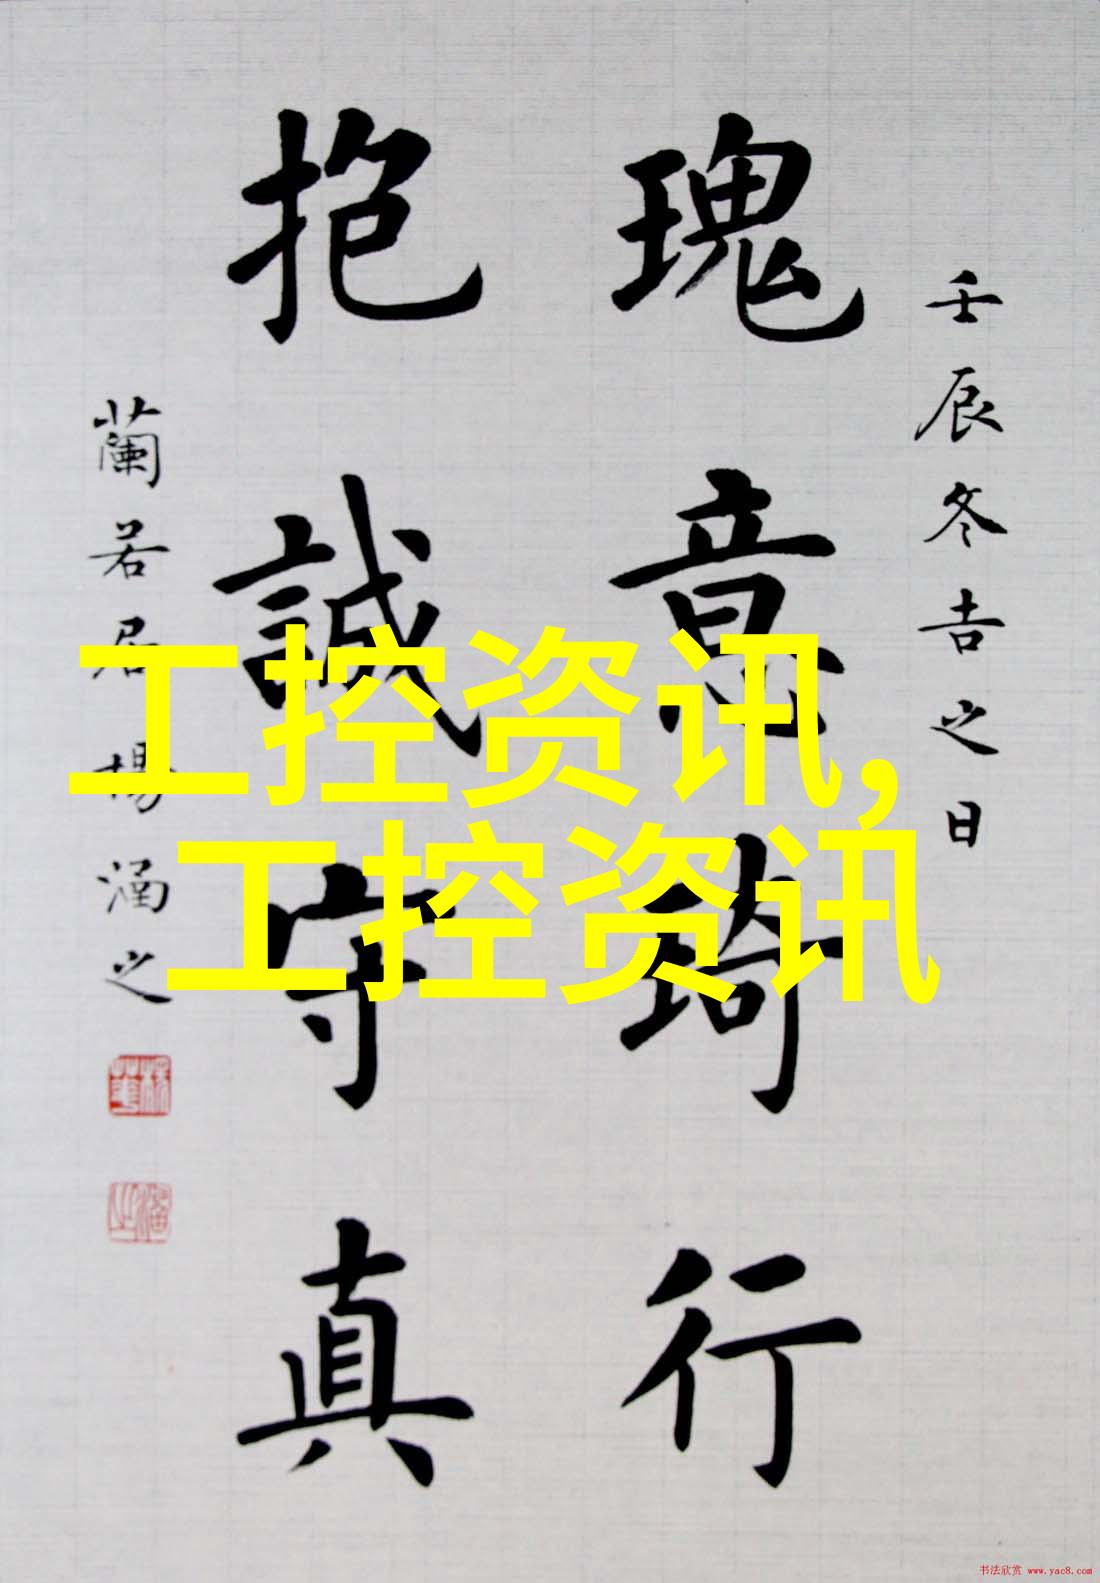 壬辰冬吉之日
瑰意琦行
抱誠守真
蘭若居楊涵之
工控资讯,
工控资讯
书法欣赏 www.yac8.com